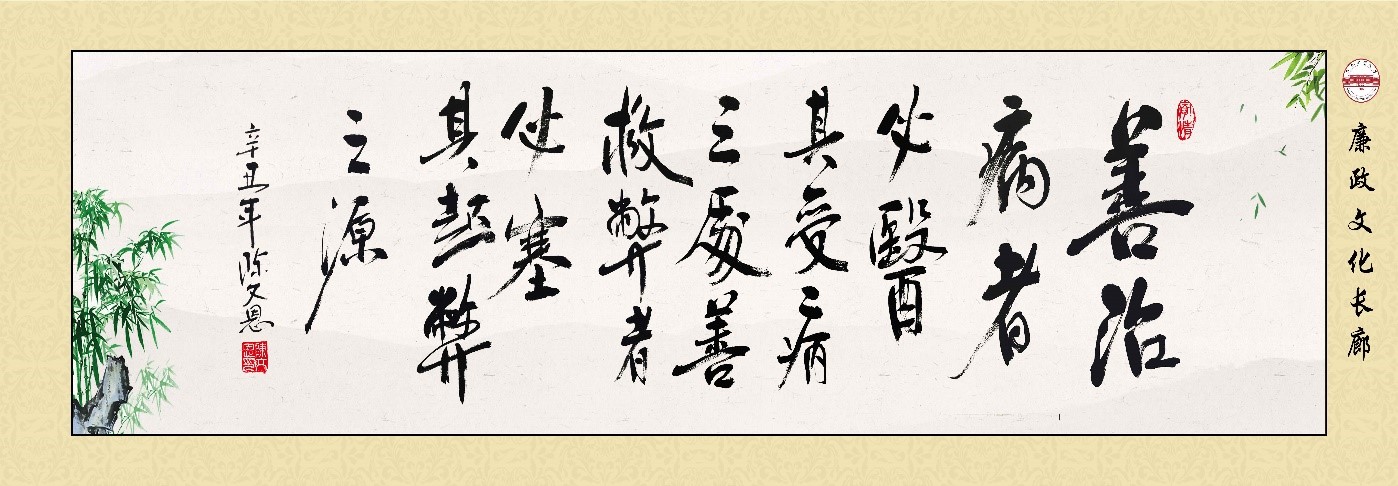 廉政文化长廊
善治
病者
必醫
其受之病
之處善
救弊者
必塞
其起弊
之源
辛丑年陈文恩